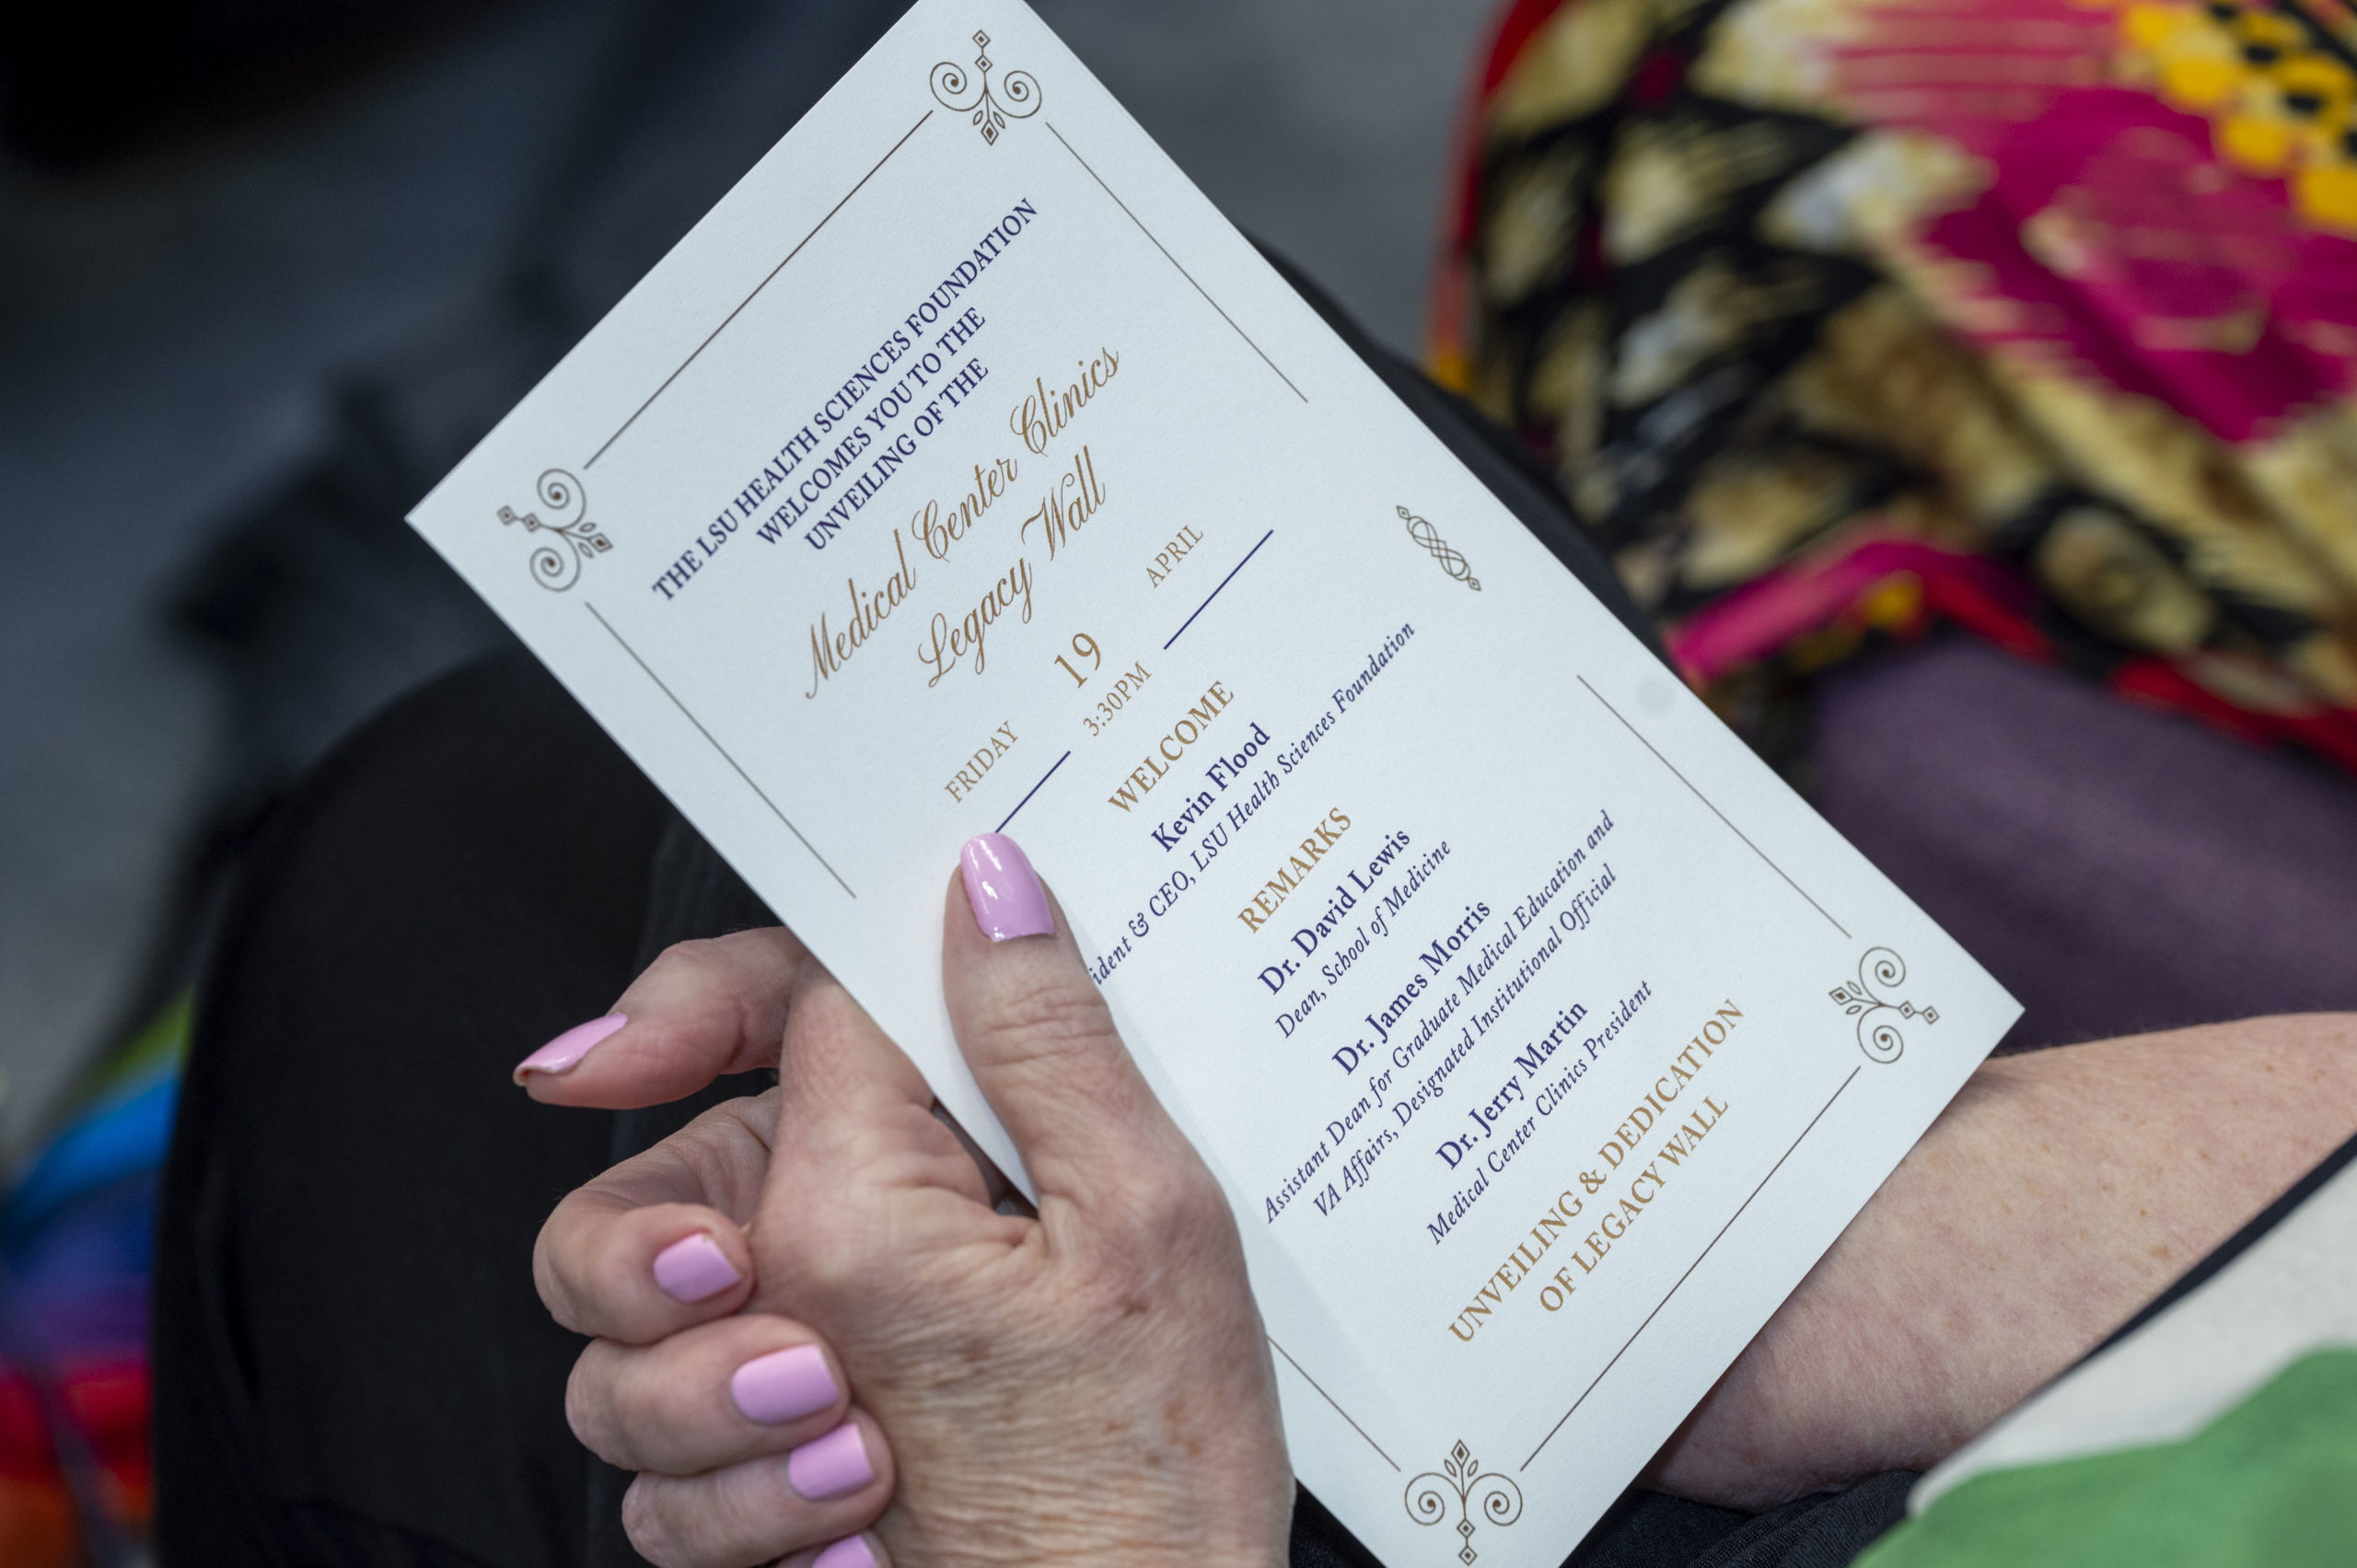 THE LSU HEALTH SCIENCES FOUNDATION
WELCOMES YOU TO THE
UNVEILING OF THE
Medical Center Clinics
Legacy Wall
FRIDAY 19 APRIL
3:30PM
WELCOME
Kevin Flood
ident & CEO, LSU Health Sciences Foundation
REMARKS
Dr. David Lewis
Dean, School of Medicine
Dr. James Morris
Assistant Dean for Graduate Medical Education and
VA Affairs, Designated Institutional Official
Dr. Jerry Martin
Medical Center Clinics President
UNVEILING & DEDICATION
OF LEGACY WALL